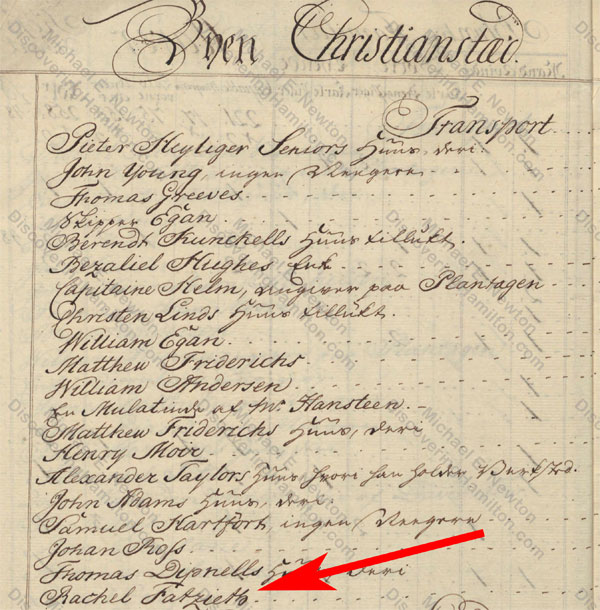 Byen Christianstæd.
Transport
Pieter Heyliger Seniors Huus, deri.
John Young, ingen Neegere
Thomas Greeves
Skipper Egan.
Berendt Kunckells Huus tillukt.
Bezaliel Hughes Enk.
Capitaine Helm, angiver paa Plantagen
Christen Linds Huus tillukt.
William Egan.
Matthew Friderichs
William Andersen.
En Mulatinde af Mr. Hansteen.
Matthew Friderichs Huus, deri
Henry Moor
Alexander Taylors Huus hvori han holder Verksted.
John Adams Huus, deri.
Samuel Hartfort, ingen Neegere
Johan Ross
Thomas Dipnells Huus, deri
Rachel Fatzieth
Michael E. Newton
DiscoveringHamilton.com